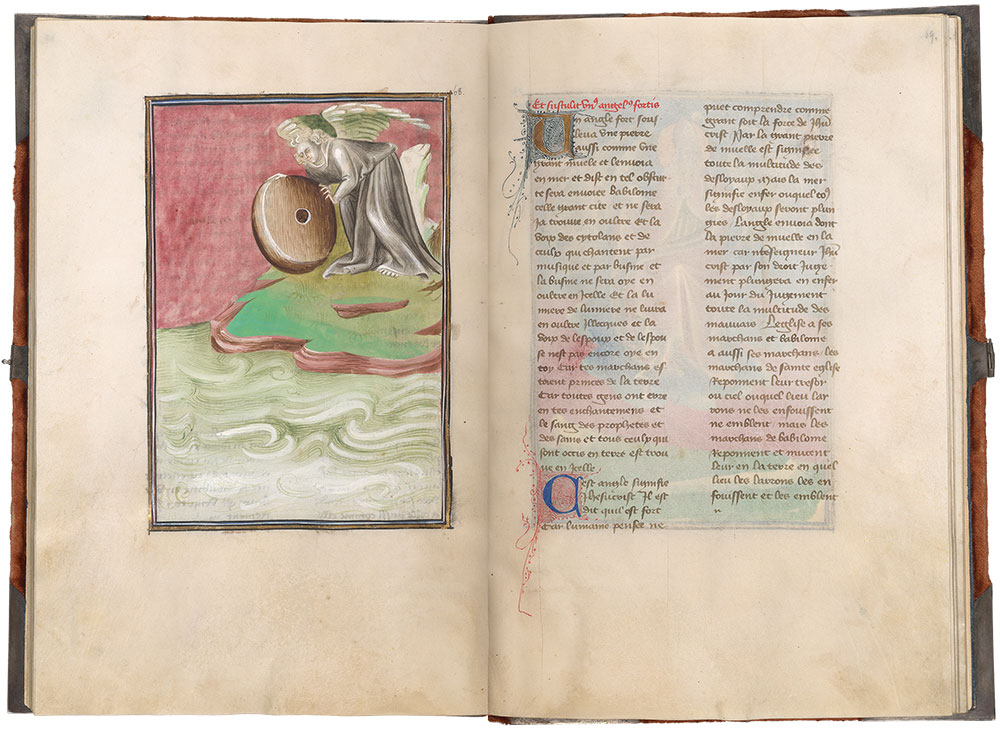 68.
69.
Et sustulit vn9 angel9 fortis
Un angle fort sous
leva vne pierre
aussi comme vne
grant muele et lenvoia
en mer et dist en tel
te sera envoiee babilone
celle grant cite et ne sera
Ja trouvee en oultre Et la
voix des cytolans et de
ceulx qui chantent par
musique et par busine et
la busine ne sera oye en
oultre en icelle Et la lu
miere de lumiere ne luira
en oultre Illecques et la
voix de lespoux et de lespou
se nest pas encore oye en
toy Car tes marchans es
toient princes de la terre
Car toutes gens ont erre
en tes enchantemens et
le sang des prophetes et
des sains et tous ceulx qui
sont occis en terre est trou
ve en Icelle
Cest angle signifie
Jhesucrist Il est
dit quil est fort
Car lumaine pensee ne
puet comprendre comme
grant soit la force de Jhu
crist Par la grant pierre
de muelle est signifiee
toute la multitude des
desloyaux Mais la mer
signifie enfer ouquel to9
les desloyaux seront plun
gies Langle envoia dont
la pierre de muelle en la
mer car nreseigneur Jhu
crist par son droit Juge
ment plungera en enfer
au Jour du Jugement
toute la multitude des
mauvais Leglise a ses
marchans et babilone
a aussi ses marchans les
marchans de sainte eglise
Reponnent leur tresor
ou ciel ouquel lieu lar
rons ne les enfouissent
ne emblent mais les
marchans de babilone
Reponnent et mucent
leur en la terre en quel
lieu les larrons les en
fouissent et les emblent